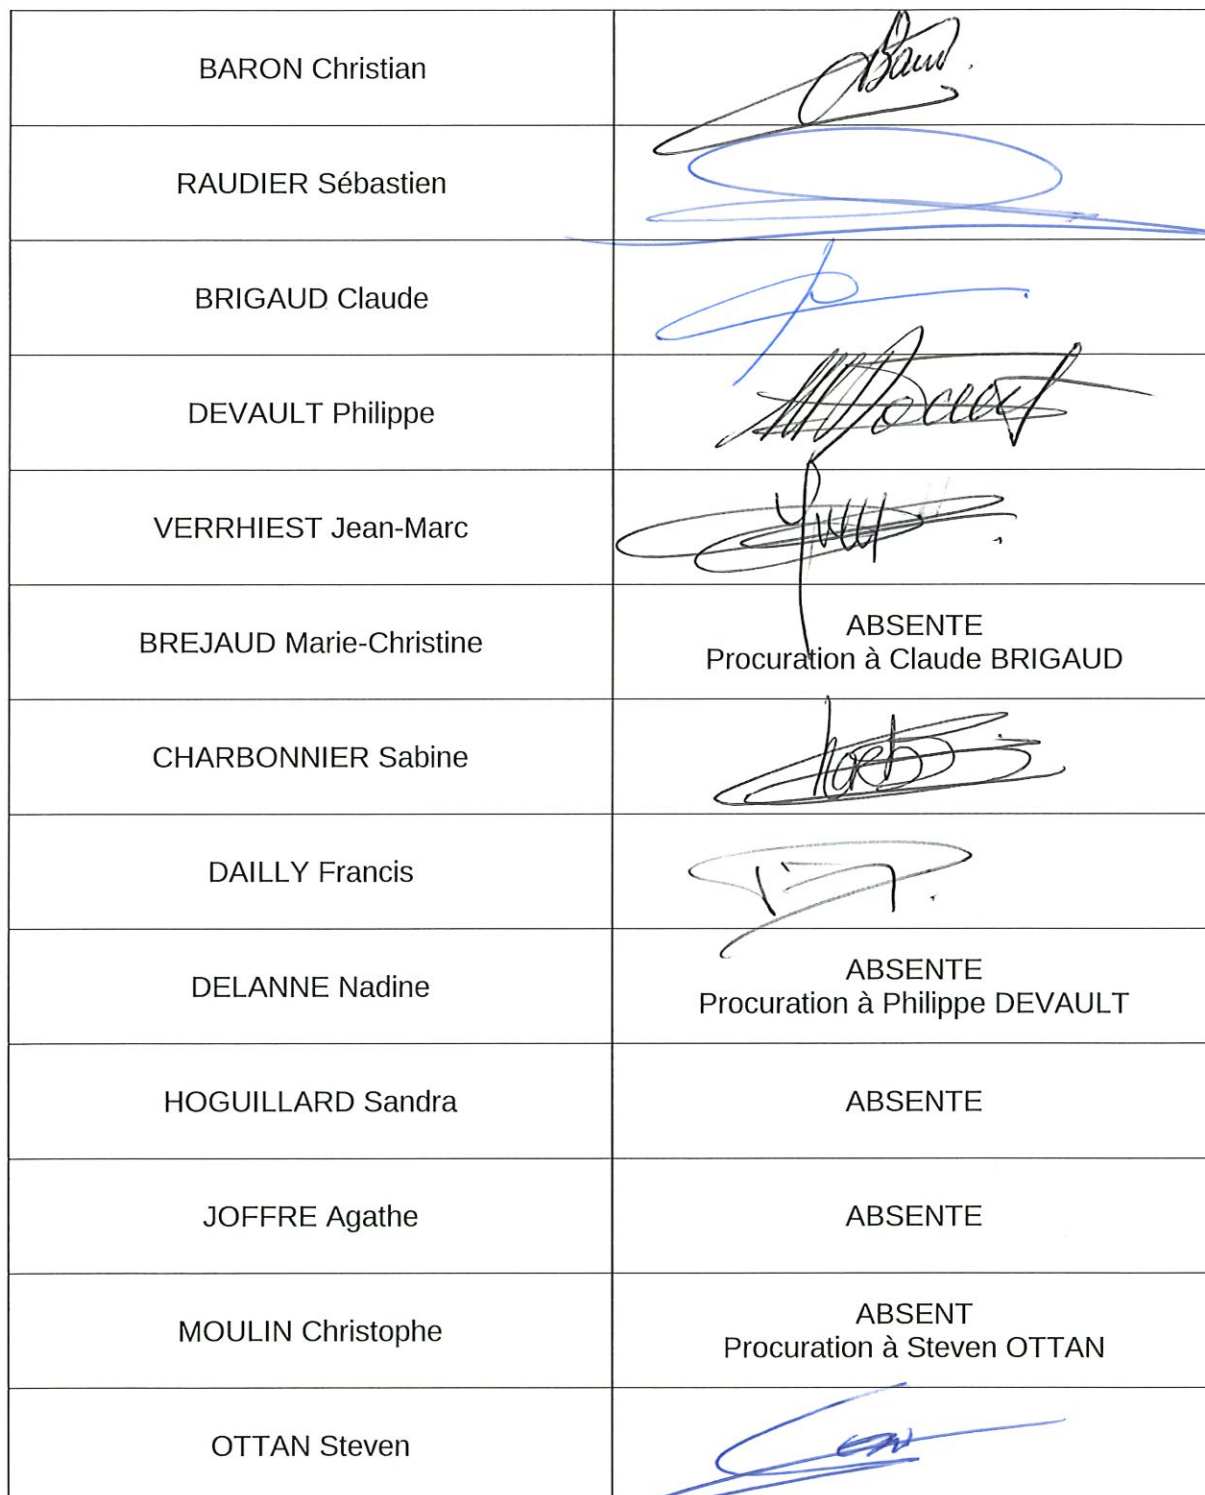 BARON Christian
RAUDIER Sébastien
BRIGAUD Claude
DEVAULT Philippe
VERRHIEST Jean-Marc
BREJAUD Marie-Christine
ABSENTE
Procuration à Claude BRIGAUD
CHARBONNIER Sabine
DAILLY Francis
DELANNE Nadine
ABSENTE
Procuration à Philippe DEVAULT
HOGUILLARD Sandra
ABSENTE
JOFFRE Agathe
ABSENTE
MOULIN Christophe
ABSENT
Procuration à Steven OTTAN
OTTAN Steven